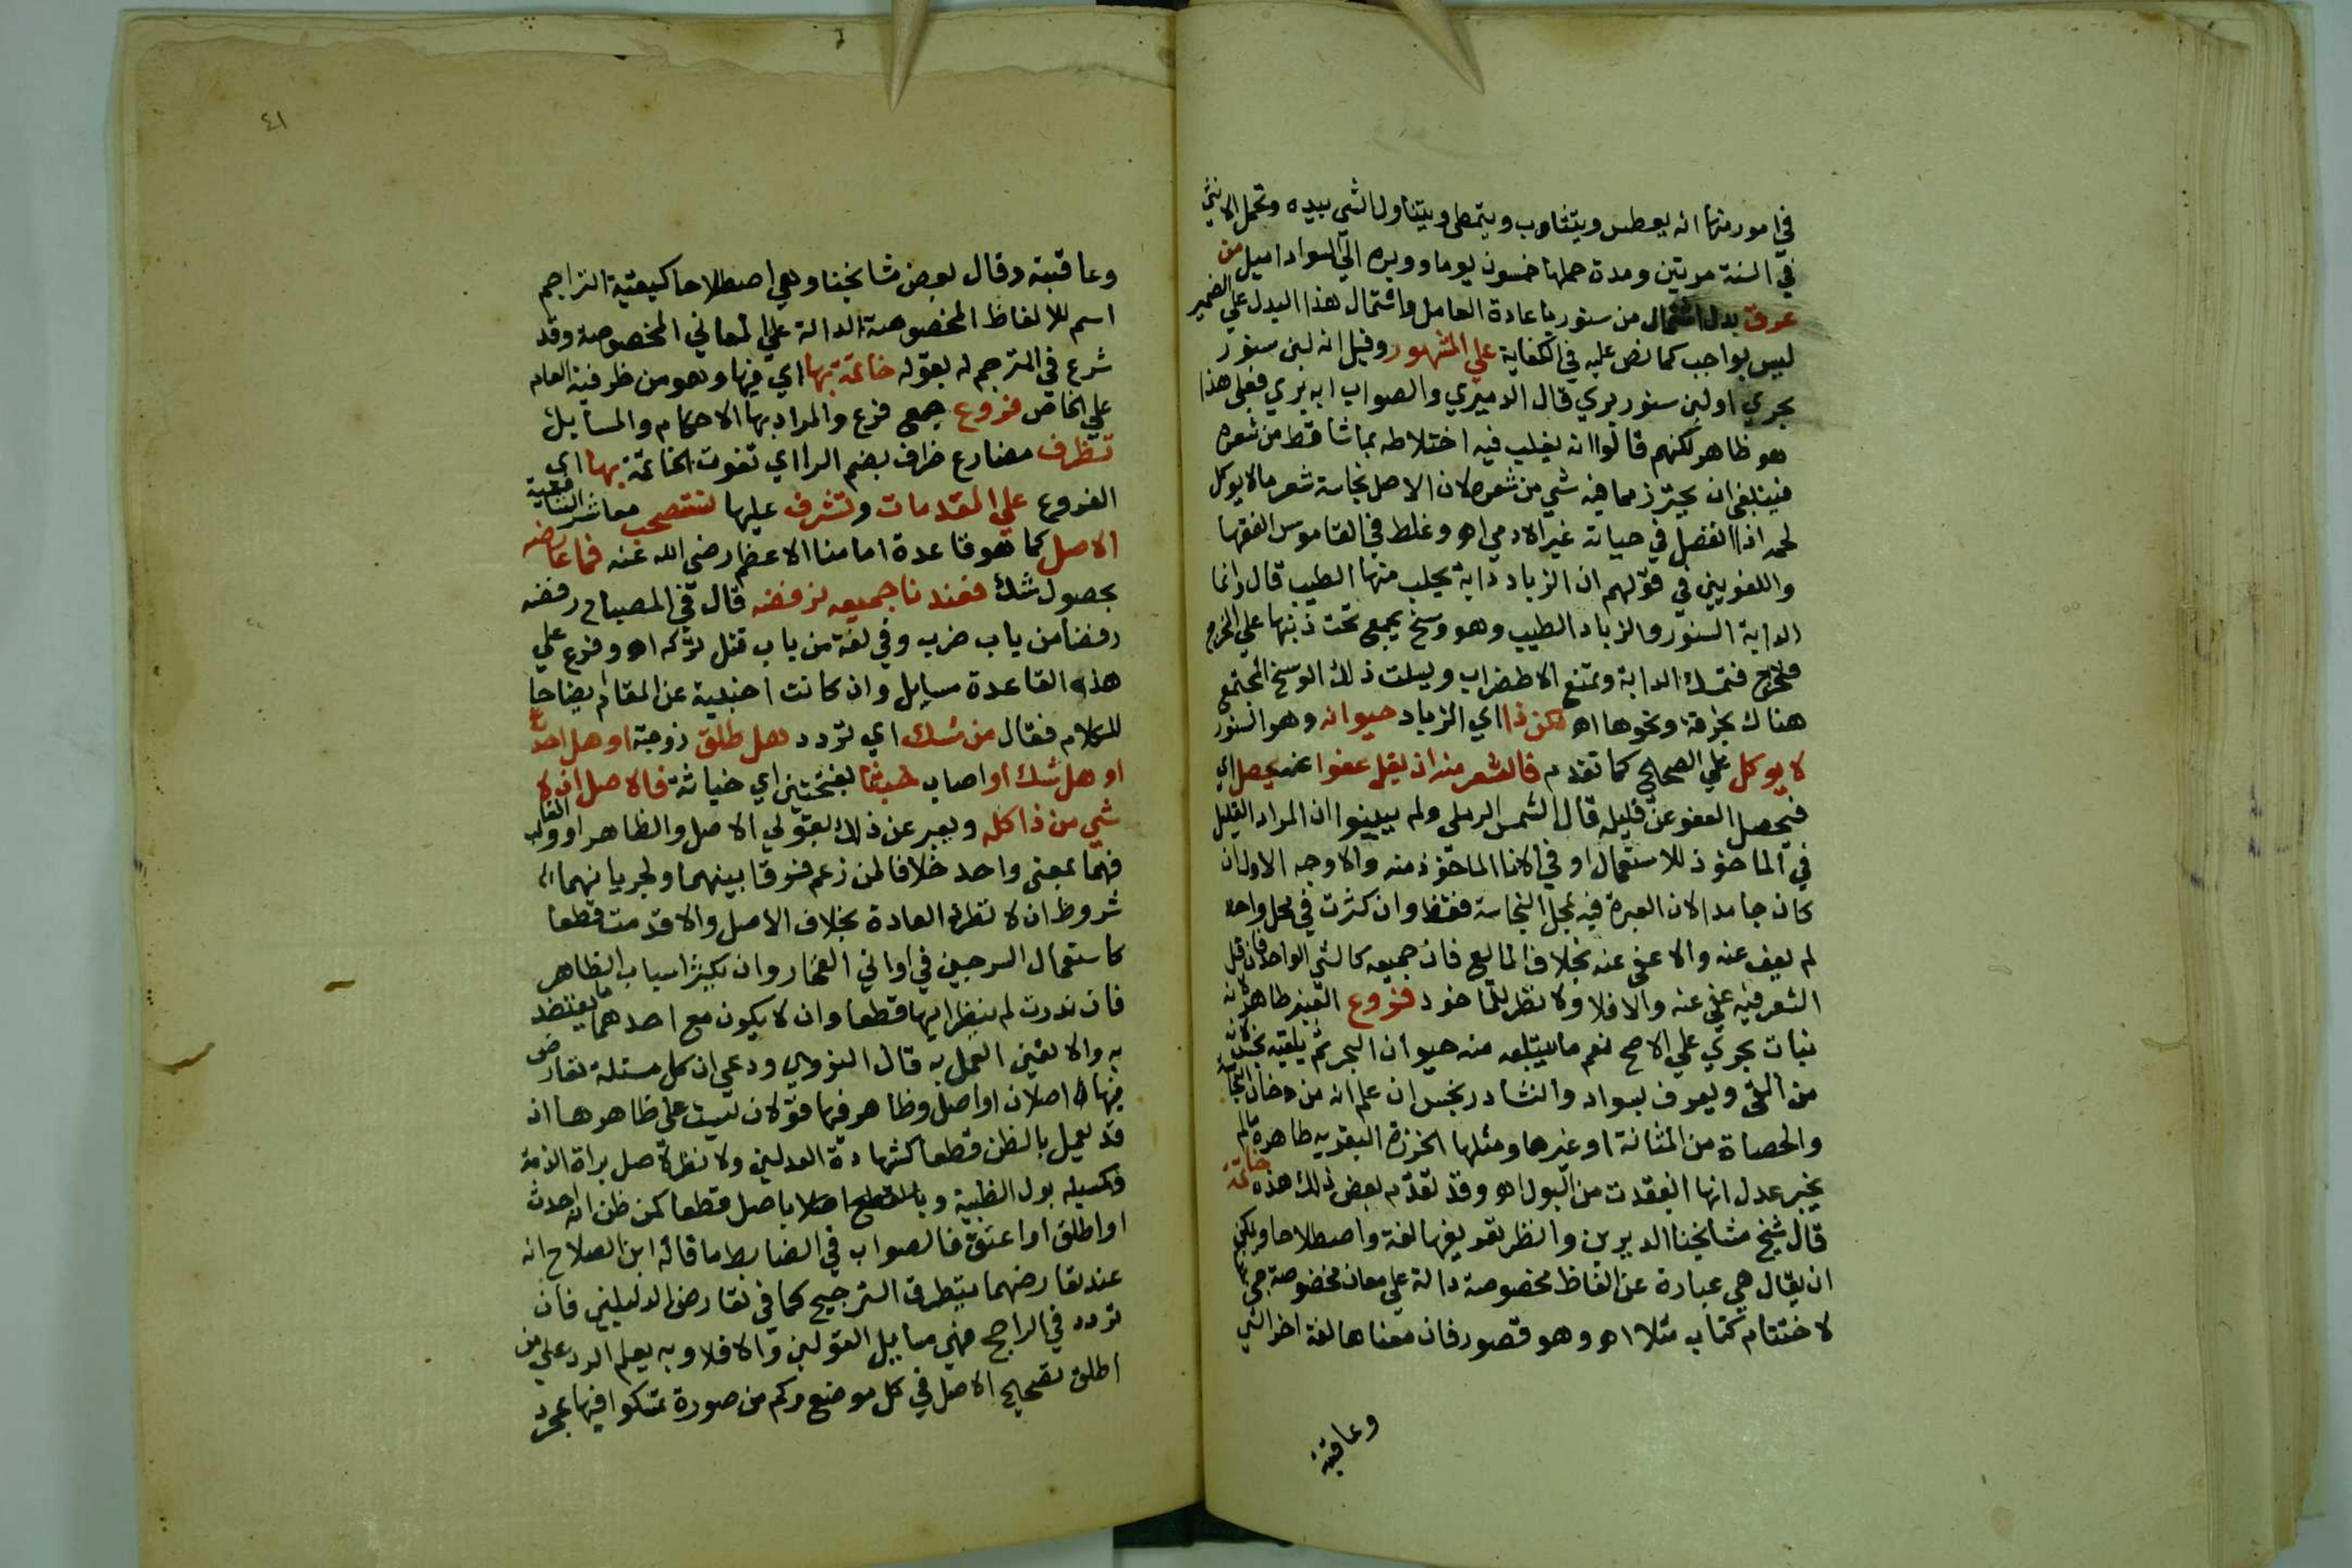 في امور منها انه يعطس ويتثاوب ويتمطى ويتناول الشي بيده وتحمل الانثى
في السنة مرتين ومدة حملها خمسون يوما ووبره الى السواد اميل من
عرق بدل اشتمال من سنور باعادة العامل واشتمال هذا البدل على الضمير
ليس بواجب كما نص عليه في الكفاية على المشهور وقيل انه لبن سنور
بحري او لبن سنور بري قال الدميري والصواب انه بري فعلى هذا
هو ظاهر لكنهم قالوا انه يغلب فيه اختلاطه بما تساقط من شعره
فينبغي ان يحترز مما فيه شي من شعره لان الاصل نجاسة شعر ما لا يوكل
لحمه اذا انفصل في حياته غير الادمي اه وغلط في القاموس الفقها
واللغويين في قولهم ان الزباد دابة يحلب منها الطيب قال وانما
الدابة السنور والزباد الطيب وهو وسخ يجمع تحت ذنبها على المخرج
فتمسك الدابة وتمنع الاضطراب ويسلت ذلك الوسخ المجتمع
هناك بخرقة ونحوها اه لكن ذا اي الزباد حيوانه وهو السنور
لا يوكل على الصحيح كما تقدم فالشعر منه ان يقل عفوا عنه يحصل اي
فيحصل العفو عن قليله قال الشمس الرملي ولم يبينوا ان المراد القليل
في الماخوذ للاستعمال او في الانا الماخوذ منه والاوجه الاول ان
كان جامدا لان العبرة فيه بمحل النجاسة فقط وان كثرت في محل واحد
لم يعف عنه والا عفي عنه بخلاف المايع فان جميعه كالشي الواحد فان قل
الشعر فيه عفي عنه والا فلا ولا نظر للماخوذ فروع العنبر طاهر لانه
نبات بحري على الاصح نعم ما يبتلعه منه حيوان البحر ثم يلقيه نجس لانه
من القي ويعرف بسواده والنشادر نجس ان علم انه من دخان النجاسة
والحصاة من المثانة او غيرها ومثلها الخرزة البقرية طاهرة ما لم
يخبر عدل انها انعقدت من البول اه وقد تقدم بعض ذلك هذه خاتمة
قال شيخ مشايخنا الديربي وانظر تعريفها لغة واصطلاحا ويمكن
ان يقال هي عبارة عن الفاظ مخصوصة دالة على معان مخصوصة جي بها
لاختتام كتاب مثلا اه وهو قصور فان معناها لغة اخر الشي
وعاقبته
٤١
وعاقبته وقال بعض مشايخنا وهي اصطلاحا كبقية التراجم
اسم للالفاظ المخصوصة الدالة على المعاني المخصوصة وقد
شرع في المترجم له بقوله خاتمة بها اي فيها وهو من ظرفية العام
على الخاص فروع جمع فرع والمراد بها الاحكام والمسايل
تظرف مضارع ظرف بضم الرا اي تفوت الخاتمة بها اي
الفروع على المقدمات وتشرف عليها لنستصحب معاشر الشافعية
الاصل كما هو قاعدة امامنا الاعظم رضي الله عنه فما عارضه
بحصول شك فعندنا جميعه نرفضه قال في المصباح رفضه
رفضا من باب ضرب وفي لغة من باب قتل تركه اه وفرع على
هذه القاعدة مسايل وان كانت اجنبية عن المقام ايضاحا
للكلام فقال من شك اي تردد هل طلق زوجته او هل احدث
او هل شك او اصاب خبثا بفتحتين اي خباثة فالاصل ان لا
شي من ذا كله ويعبر عن ذلك بقولي الاصل والظاهر او والغالب
فهما بمعنى واحد خلافا لمن زعم فرقا بينهما ولجريانهما
شروط ان لا تطرد العادة بخلاف الاصل والا قدمت قطعا
كاستعمال السرجين في اواني الفخار وان تكثر اسباب الظاهر
فان ندرت لم ينظر اليها قطعا وان لا يكون مع احدهما ما يعتضد
به والا تعين العمل به قال النووي ودعوى ان كل مسئلة تعارض
فيها اصلان او اصل وظاهر فيها قولان ليست على ظاهرها اذ
قد يعمل بالظن قطعا كشهادة العدلين ولا نظر لاصل براة الذمة
وكمسيلة بول الظبية وبالقطع اصلا باصل قطعا كمن ظن انه احدث
او اطلق او اعتق فالصواب في الضابط ما قاله ابن الصلاح انه
عند تعارضهما يتطرق الترجيح كما في تعارض الدليلين فان
تردد في الراجح فهي مسايل القولين والا فلا وبه يعلم الرد على من
اطلق تصحيح الاصل في كل موضع وكم من صورة تمسكوا فيها بمجرد